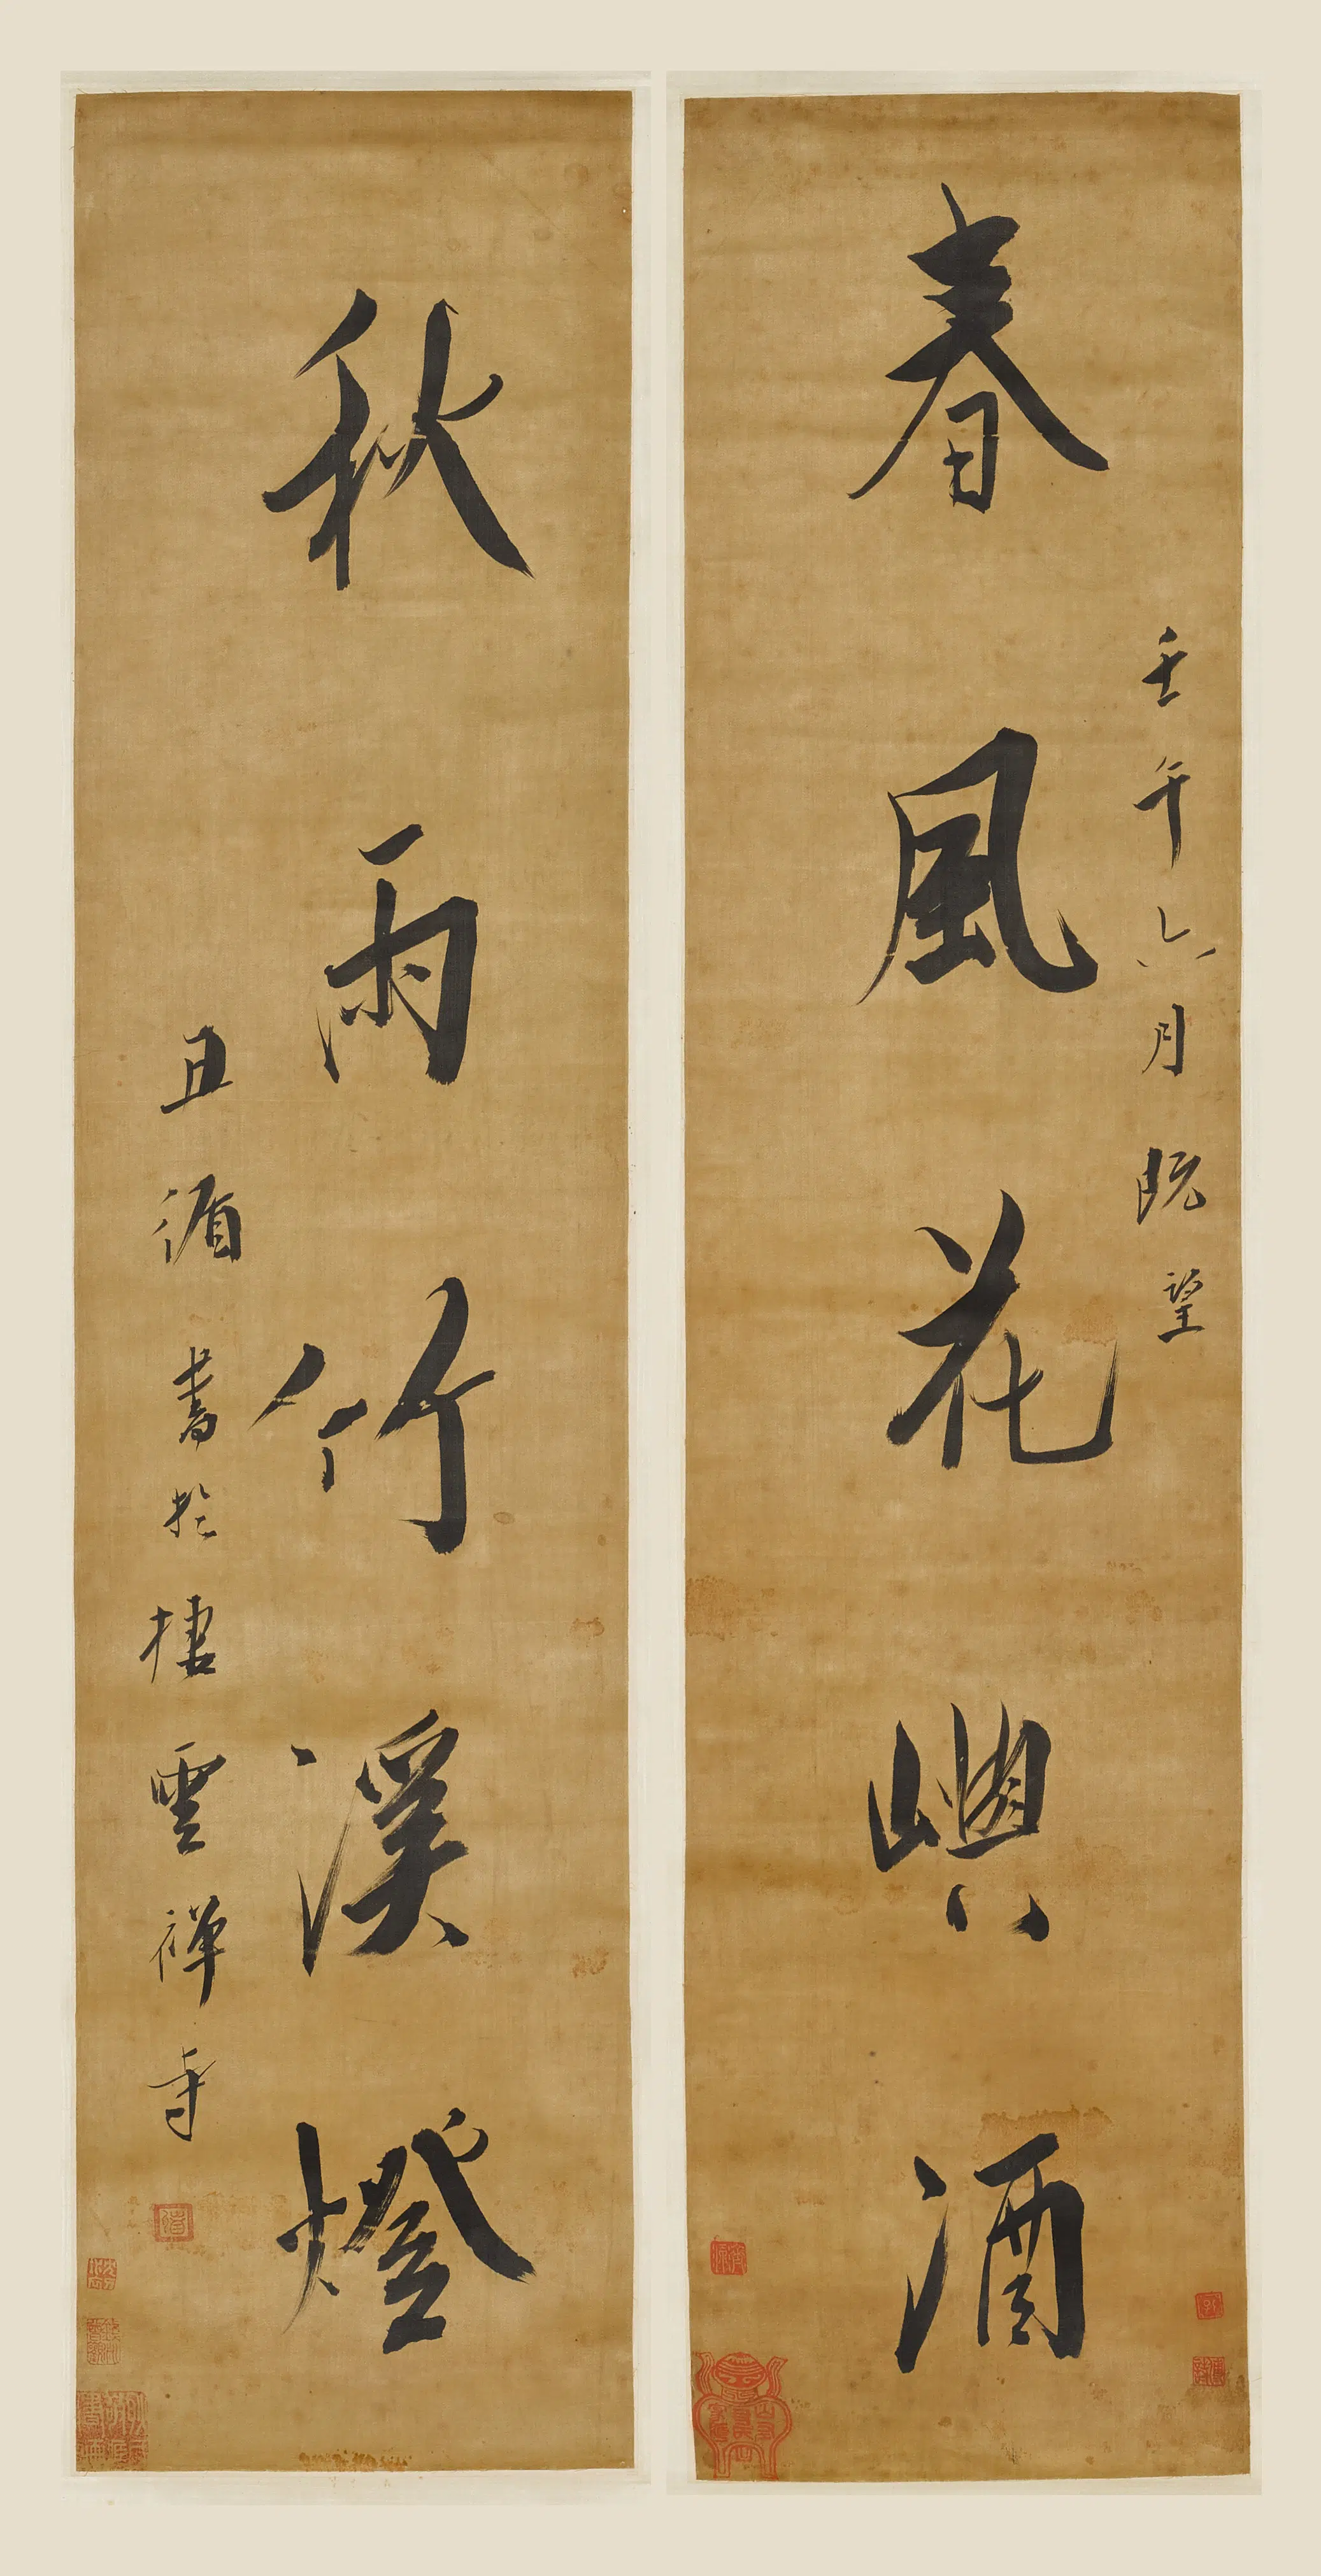 壬午六月既望
春風花嶼酒
秋雨竹溪燈
且循書於棲雲禪寺